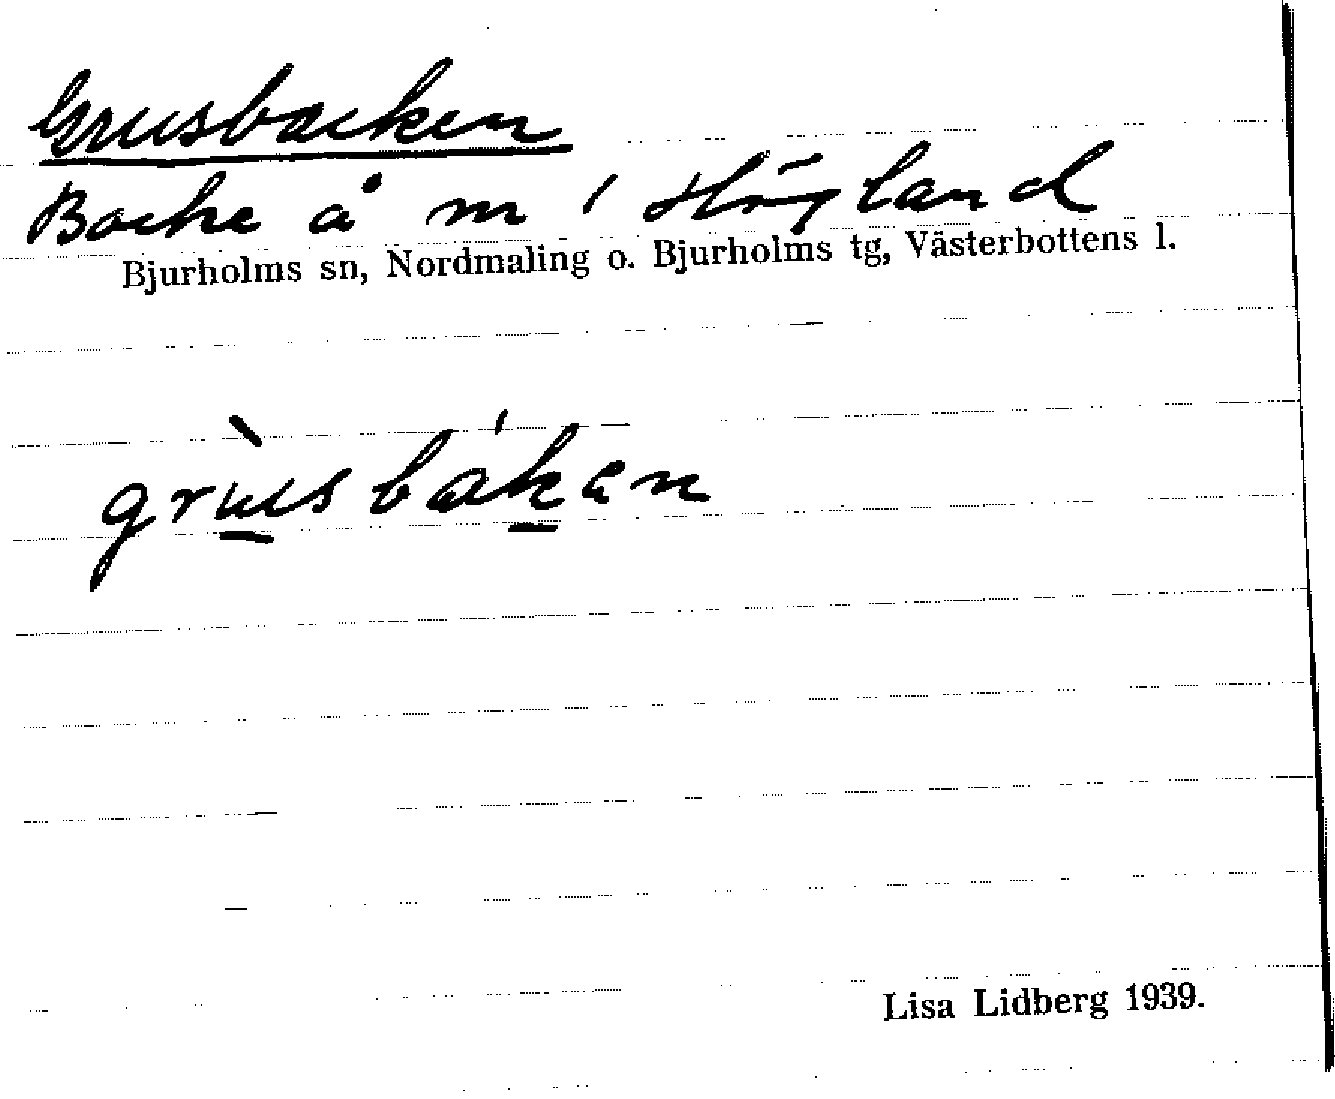 Grusbacken
Backe å m i Högland
Bjurholms sn, Nordmaling o. Bjurholms tg, Västerbottens l.
grùsbákan
Lisa Lidberg 1939.